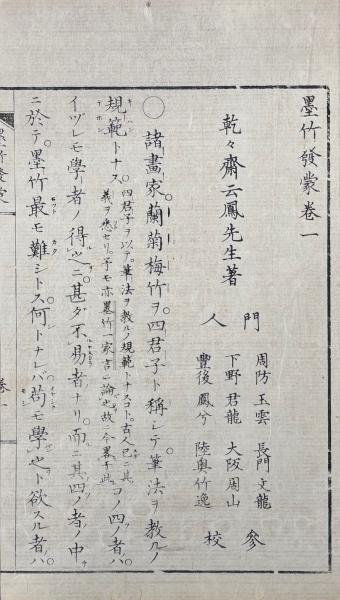 墨竹發蒙卷一
乾々齋云鳳先生著
門人
周防玉雲 長門文龍
下野君龍 大阪周山
豐後鳳兮 陸奥竹逸
參校
○諸畫家蘭菊梅竹ヲ四君子ト稱シテ筆法ヲ教ルノ
規範トナス
四君子ヲ以テ筆法ヲ教ルノ規範トナスコト古人已ニ其
義ヲ悉セリ予モ亦墨竹一家言ニ論ス故ニ今畧于此
コノ四ノ者ハ
イヅレモ學者ノ得之ニ甚ダ不易者ナリ而ニ其四ノ者ノ中
ニ於テ墨竹最モ難シトス何トナレバ苟モ學之ト欲スル者ハ
墨竹發蒙
卷一